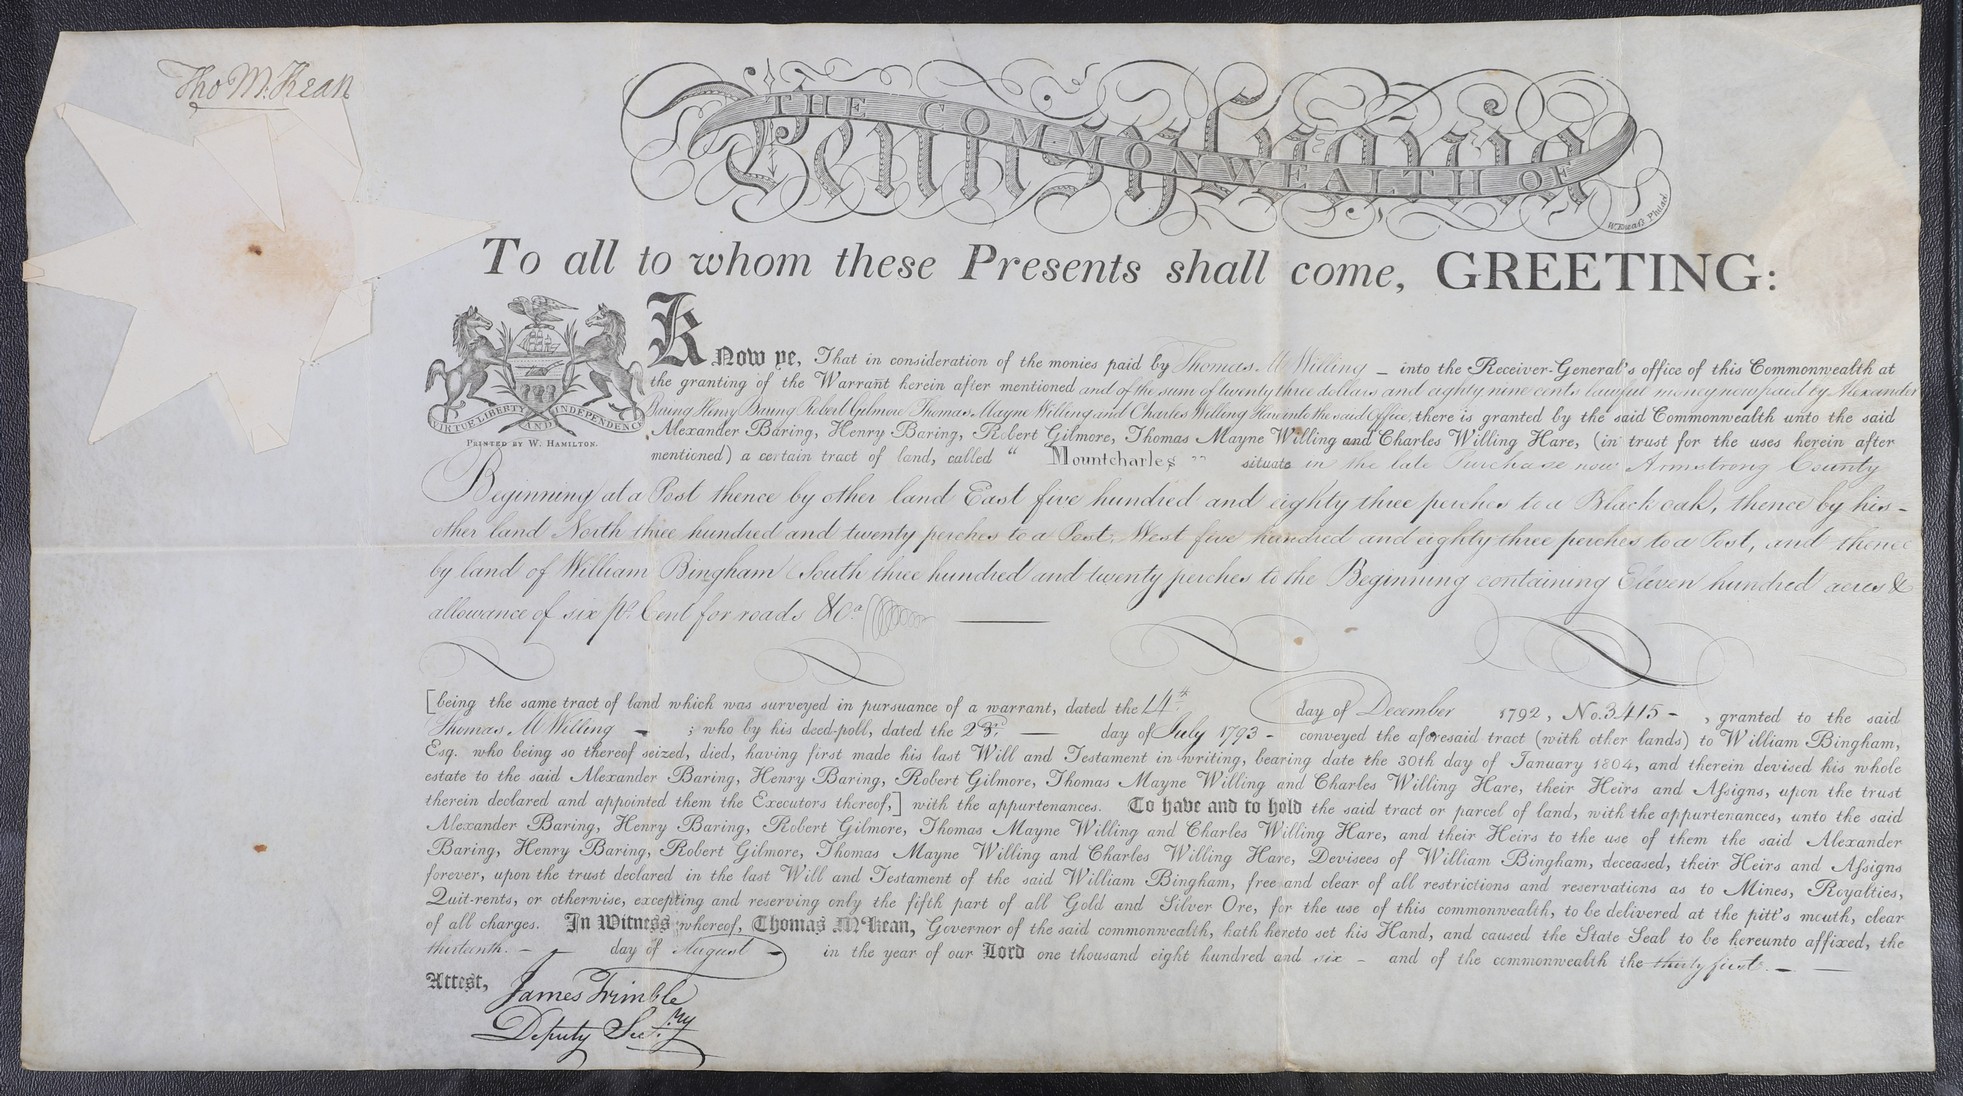 Tho M:Kean
THE COMMONWEALTH OF
Pennsylvania
W. Kneaß Philad.
To all to whom these Presents shall come, GREETING:
VIRTUE LIBERTY AND INDEPENDENCE
PRINTED BY W. HAMILTON.
Know ye, That in consideration of the monies paid by Thomas M Willing – into the Receiver-General's office of this Commonwealth at
the granting of the Warrant herein after mentioned and of the sum of twenty three dollars and eighty nine cents lawful money now paid by Alexander
Baring Henry Baring Robert Gilmore Thomas Mayne Willing and Charles Willing Hare into the said Office, there is granted by the said Commonwealth unto the said
Alexander Baring, Henry Baring, Robert Gilmore, Thomas Mayne Willing and Charles Willing Hare, (in trust for the uses herein after
mentioned) a certain tract of land, called " Mountcharles " situate in the late Purchase now Armstrong County
Beginning at a Post thence by other land East five hundred and eighty three perches to a Black oak, thence by his –
other land North three hundred and twenty perches to a Post, West five hundred and eighty three perches to a Post, and thence
by land of William Bingham South three hundred and twenty perches to the Beginning containing Eleven hundred acres &
allowance of six pr. Cent for roads &ca.
[being the same tract of land which was surveyed in pursuance of a warrant, dated the 14th. day of December 1792, No. 3415 – , granted to the said
Thomas M Willing – ; who by his deed-poll, dated the 23d. — day of July 1793 – conveyed the aforesaid tract (with other lands) to William Bingham,
Esq. who being so thereof seized, died, having first made his last Will and Testament in writing, bearing date the 30th day of January 1804, and therein devised his whole
estate to the said Alexander Baring, Henry Baring, Robert Gilmore, Thomas Mayne Willing and Charles Willing Hare, their Heirs and Aſsigns, upon the trust
therein declared and appointed them the Executors thereof,] with the appurtenances. To have and to hold the said tract or parcel of land, with the appurtenances, unto the said
Alexander Baring, Henry Baring, Robert Gilmore, Thomas Mayne Willing and Charles Willing Hare, and their Heirs to the use of them the said Alexander
Baring, Henry Baring, Robert Gilmore, Thomas Mayne Willing and Charles Willing Hare, Devisees of William Bingham, deceased, their Heirs and Aſsigns
forever, upon the trust declared in the last Will and Testament of the said William Bingham, free and clear of all restrictions and reservations as to Mines, Royalties,
Quit-rents, or otherwise, excepting and reserving only the fifth part of all Gold and Silver Ore, for the use of this commonwealth, to be delivered at the pitt's mouth, clear
of all charges. In Witness whereof, Thomas M'Kean, Governor of the said commonwealth, hath hereto set his Hand, and caused the State Seal to be hereunto affixed, the
thirteenth. – day of August in the year of our Lord one thousand eight hundred and six – and of the commonwealth the thirty first. –
Attest, James Trimble
Deputy Secry.